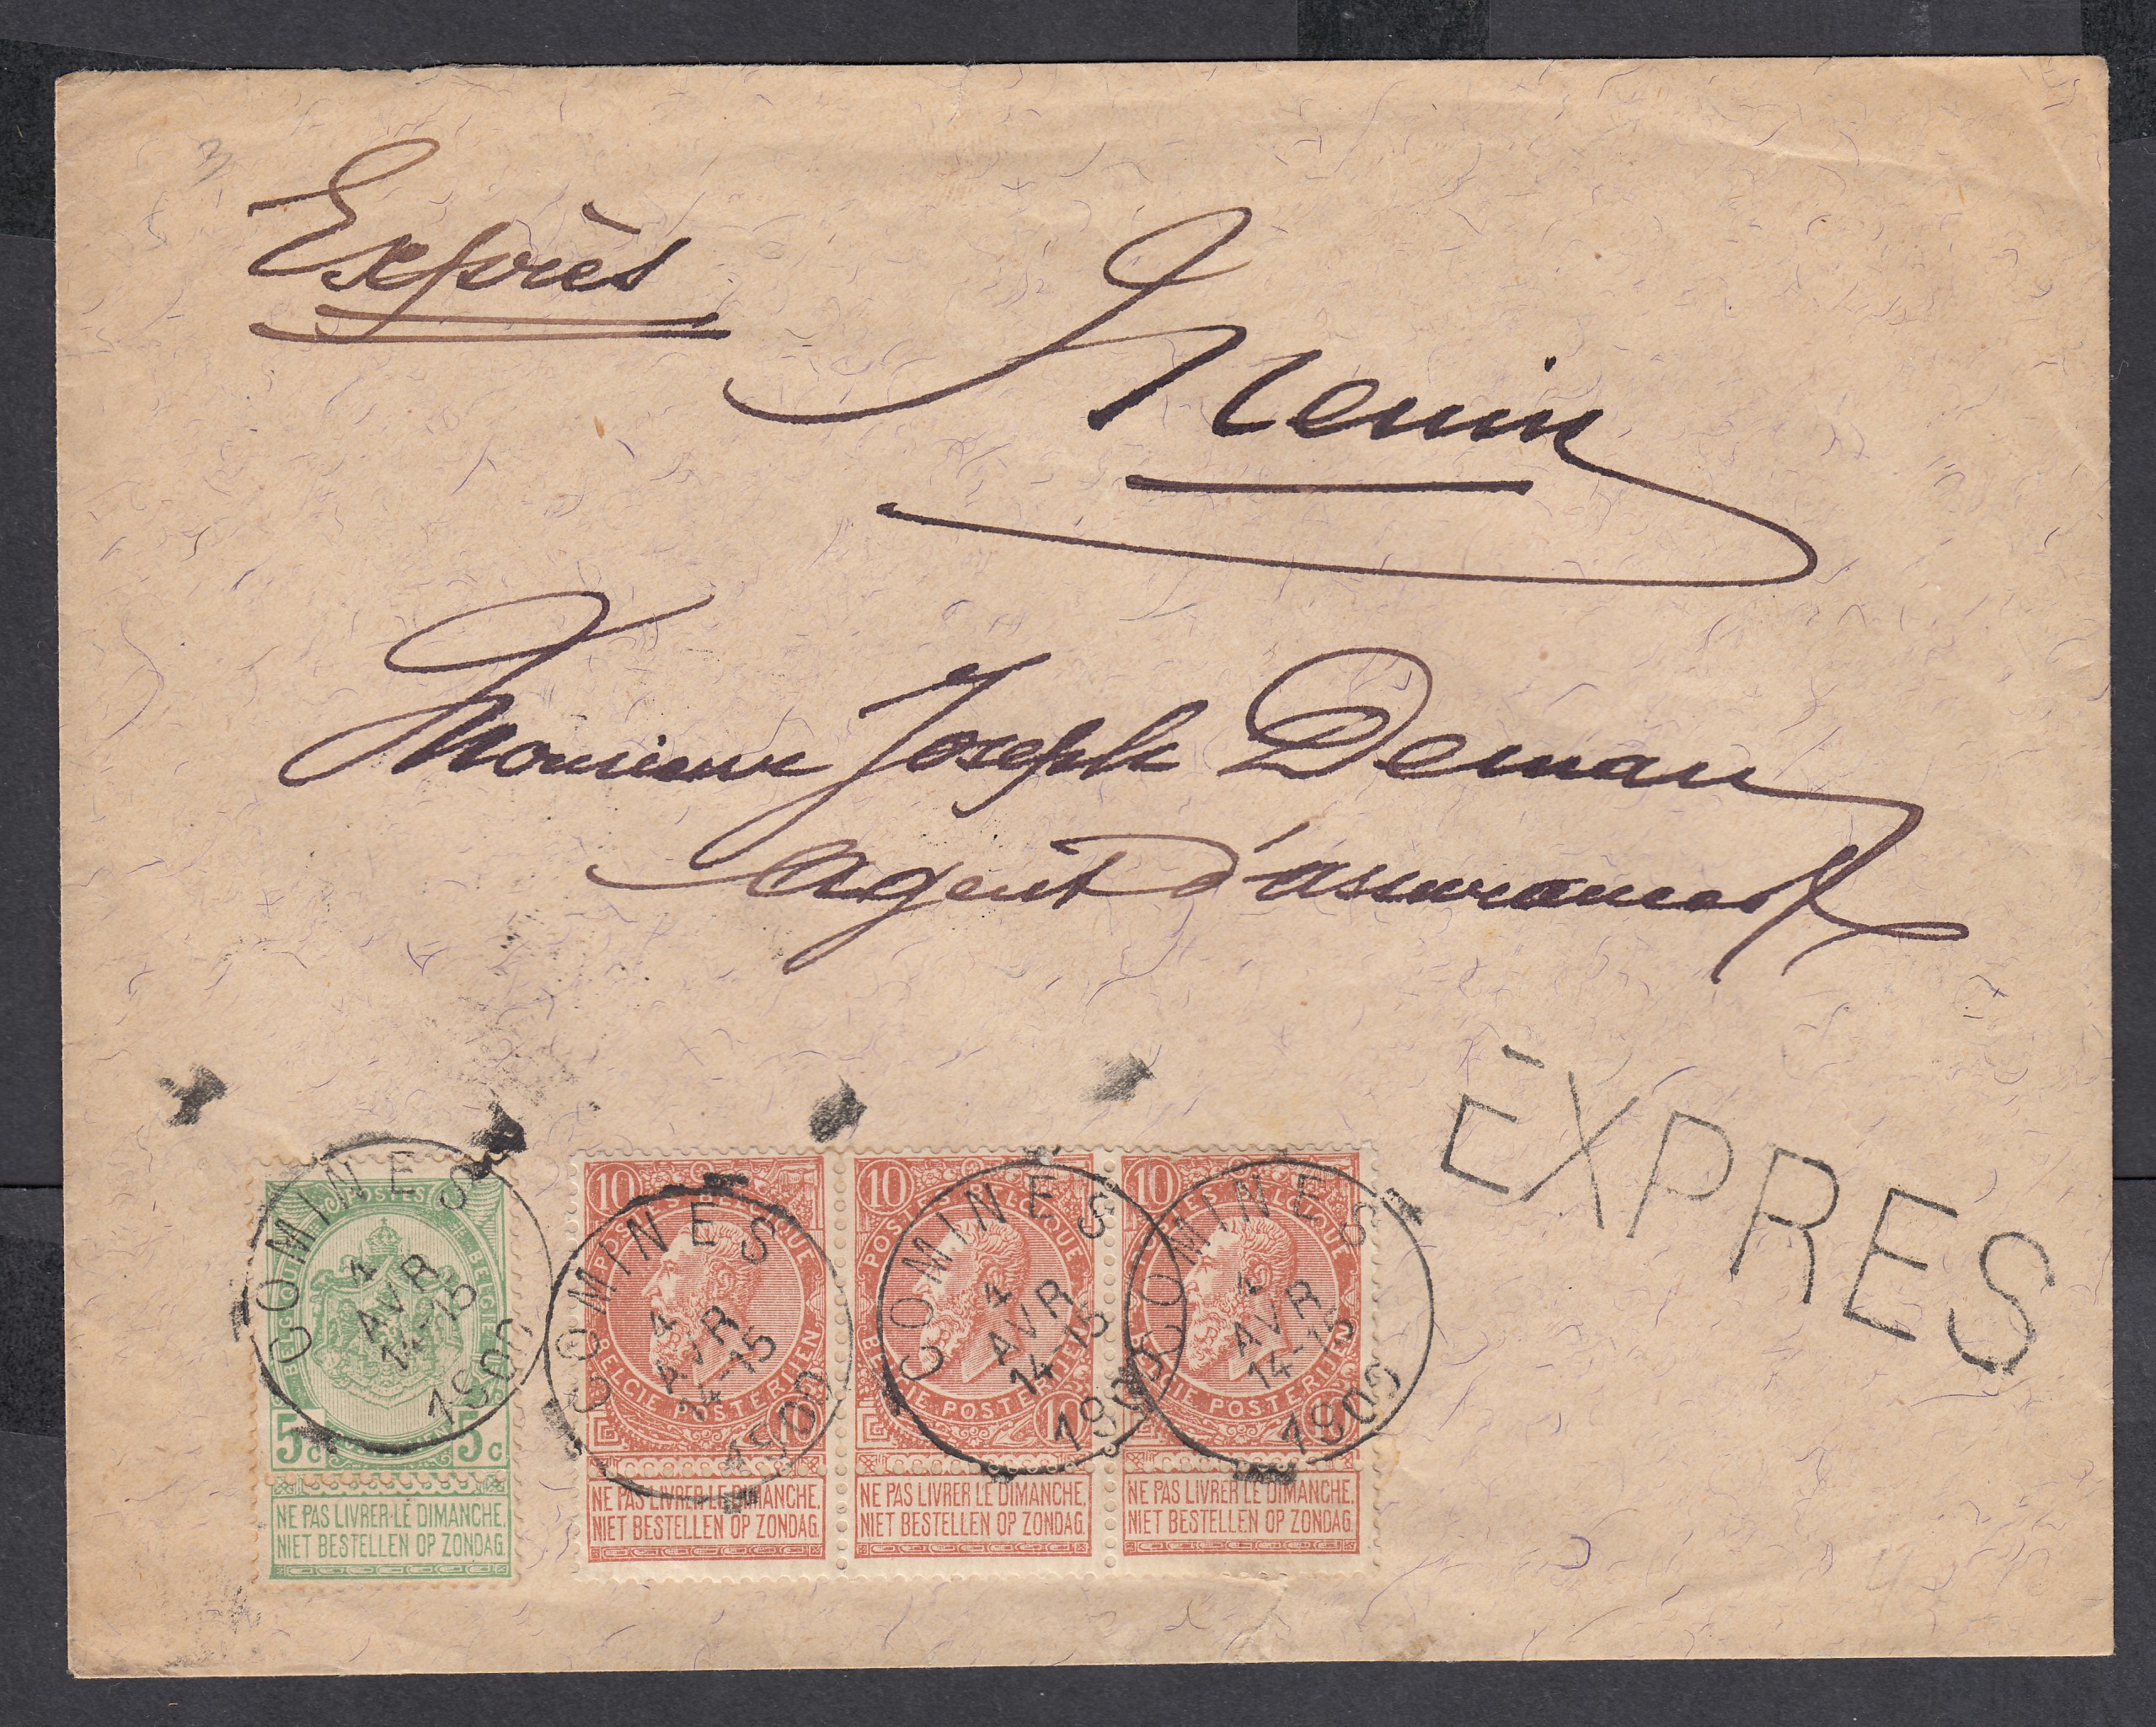 Exprès
Menin
Monsieur Joseph Deman
Agent d'assurances
EXPRES
COMINES
4
AVR
14-15
1900
5c 5c
NE PAS LIVRER LE DIMANCHE.
NIET BESTELLEN OP ZONDAG.
10
POSTES BELGIQUE
BELGIE POSTERIJEN
COMINES
4
AVR
14-15
1900
NE PAS LIVRER LE DIMANCHE.
NIET BESTELLEN OP ZONDAG.
10
POSTES BELGIQUE
BELGIE POSTERIJEN
10
COMINES
4
AVR
14-15
1900
NE PAS LIVRER LE DIMANCHE.
NIET BESTELLEN OP ZONDAG.
10
POSTES BELGIQUE
BELGIE POSTERIJEN
COMINES
4
AVR
14-15
1900
NE PAS LIVRER LE DIMANCHE.
NIET BESTELLEN OP ZONDAG.